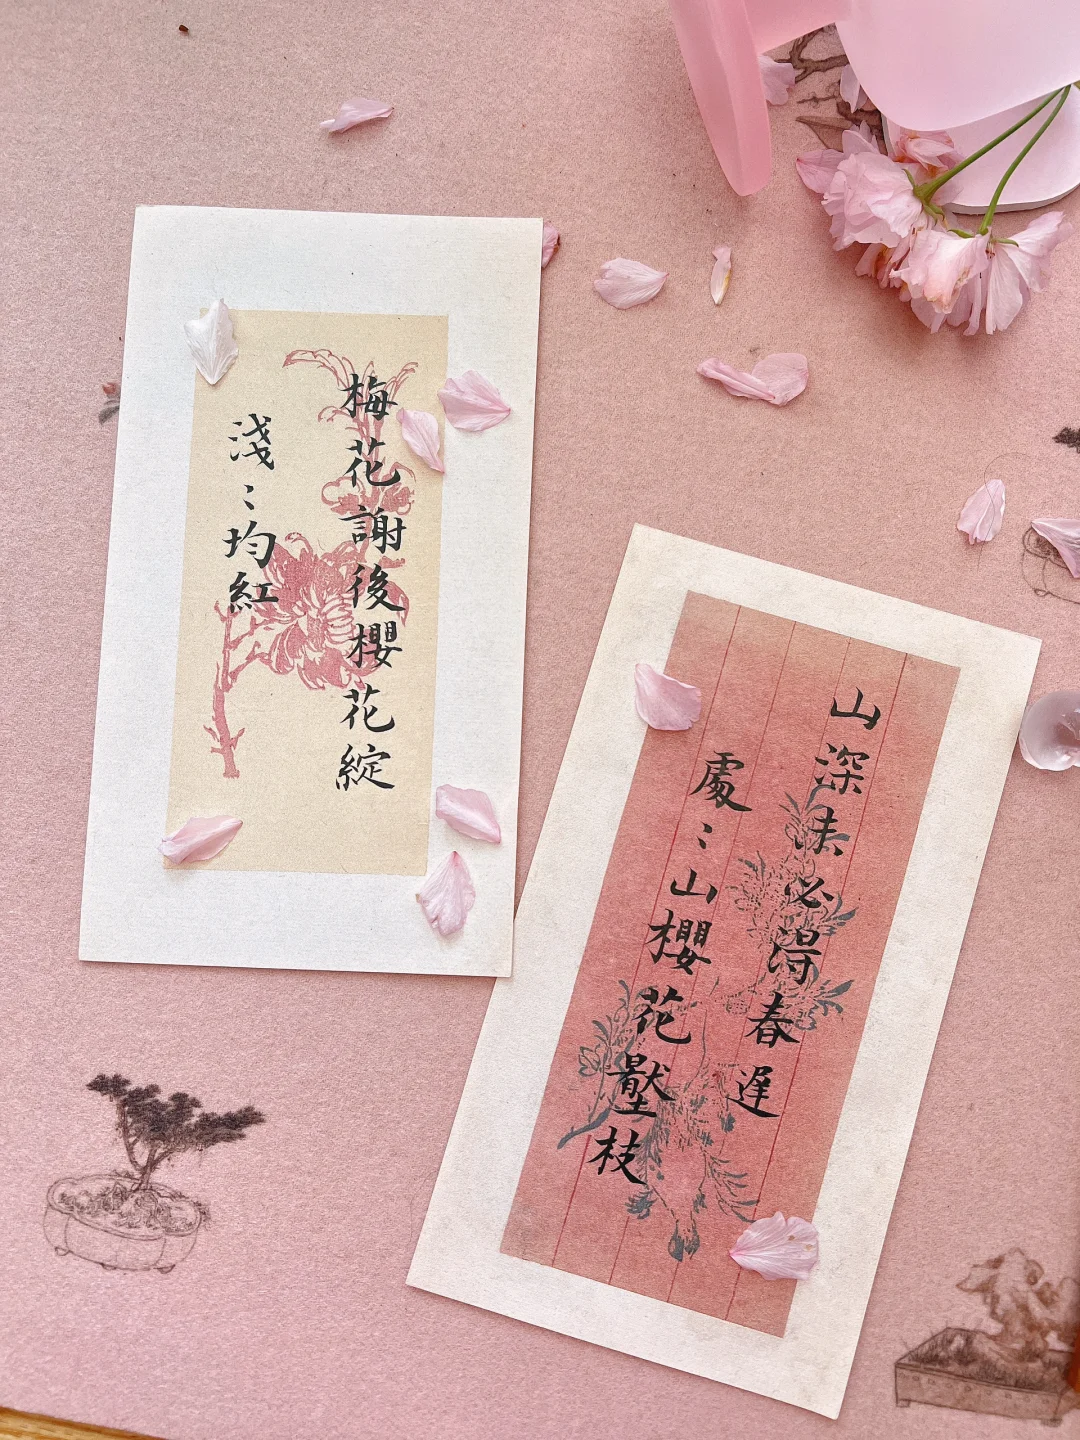 梅花謝後櫻花綻
淺〻均紅
山深未必得春遲
處〻山櫻花壓枝